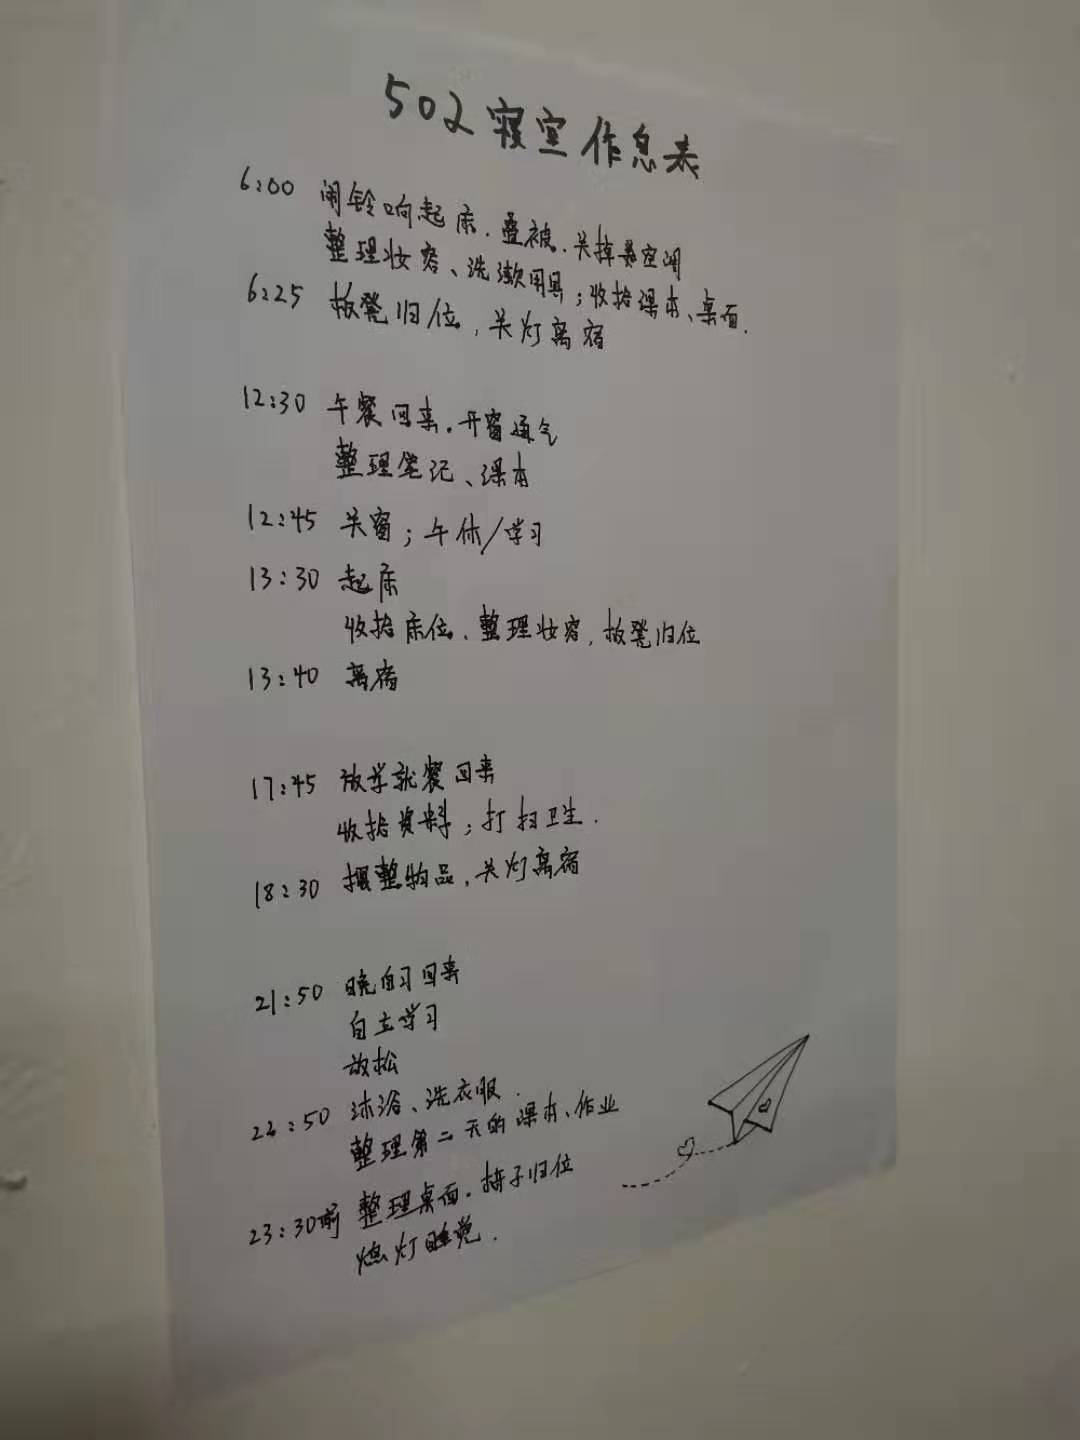 502寝室作息表
6:00 闹铃响起床.叠被.关掉空调
整理妆容、洗漱用具;收拾课本、桌面.
6:25 板凳归位,关灯离宿
12:30 午餐回来.开窗通气
整理笔记、课本
12:45 关窗;午休/学习
13:30 起床
收拾床位、整理妆容,板凳归位
13:40 离宿
17:45 放学就餐回来
收拾资料;打扫卫生.
18:30 摆整物品,关灯离宿
21:50 晚自习回来
自主学习
放松
22:50 沐浴、洗衣服.
整理第二天的课本、作业
23:30前 整理桌面.椅子归位
熄灯睡觉.